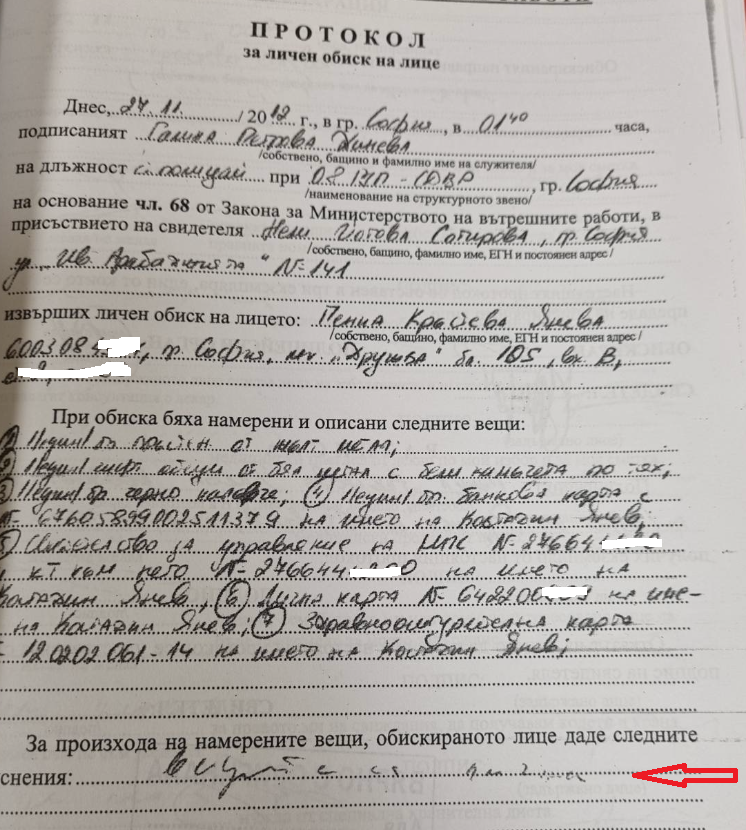 ПРОТОКОЛ
за личен обиск на лице
Днес, 27.11. / 2012 г., в гр. София, в 01⁴⁰ часа,
подписаният Галина Петрова
/собствено, бащино и фамилно име на служителя/
на длъжност полицай при 08 РУП - СДВР, гр. София
/наименование на структурното звено/
на основание чл. 68 от Закона за Министерството на вътрешните работи, в
присъствието на свидетеля Нели Сотирова, гр. София
/собствено, бащино, фамилно име, ЕГН и постоянен адрес /
ул. "Ив. Арабаджията" №-141
извърших личен обиск на лицето: Пенка Янева
/собствено, бащино, фамилно име, ЕГН и постоянен адрес /
600308 гр. София, жк. "Дружба" бл. 105, вх. В,
При обиска бяха намерени и описани следните вещи:
1 /един/ бр. от жълт метал;
2 /един/ чифт обеци от бял метал с бели камъчета по тях;
3 /един/ бр. черно 4 /един/ бр. банкова карта с
на името на Костадин Янев,
5 Свидетелство за управление на МПС №-276644
към него №-276644 на името на
Костадин Янев, 6 Лична карта №-642200 на име-
на Костадин Янев; 7 Здравноосигурителна карта
12.0202.061-14 на името на Костадин Янев;
За произхода на намерените вещи, обискираното лице даде следните
снения: